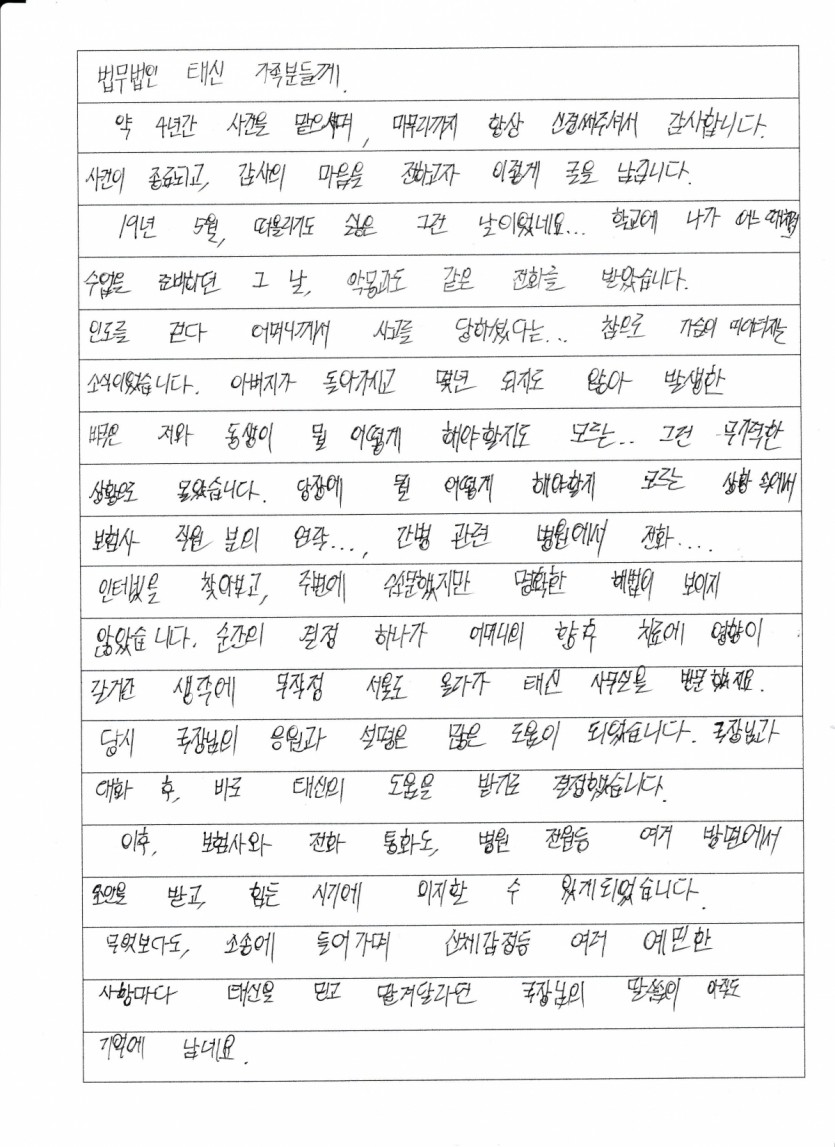 법무법인 태신 가족분들께.
약 4년간 사건을 맡으시며, 마무리까지 항상 신경써주셔서 감사합니다.
사건이 종료되고, 감사의 마음을 전하고자 이렇게 글을 남깁니다.
19년 5월, 떠올리기도 싫은 그런 날이었네요... 학교에 나가 여느때처럼
수업을 준비하던 그 날, 악몽과도 같은 전화를 받았습니다.
인도를 걷다 어머니께서 사고를 당하셨다는... 참으로 가슴이 미어터지는
소식이었습니다. 아버지가 돌아가시고 몇년 되지도 않아 발생한
저와 동생이 뭘 어떻게 해야할지도 모르는.. 그런 무기력한
상황으로 몰았습니다. 당장에 뭘 어떻게 해야할지 모르는 상황 속에서
보험사 직원 분의 연락..., 간병 관련 병원에서 전화....
인터넷을 찾아보고, 주변에 수소문했지만 명확한 해법이 보이지
않았습니다. 순간의 결정 하나가 어머니의 향후 치료에 영향이
갈거란 생각에 무작정 서울로 올라가 태신 사무실을 방문했지요.
당시 국장님의 응원과 설명은 많은 도움이 되었습니다. 국장님과
대화 후, 바로 태신의 도움을 받기로 결정했습니다.
이후, 보험사와 전화 통화도, 병원 전원등 여러 방면에서
조언을 받고, 힘든 시기에 의지할 수 있게되었습니다.
무엇보다도, 소송에 들어가며 신체감정등 여러 예민한
사항마다 태신을 믿고 맡겨달라던 국장님의 말씀이 아직도
기억에 남네요.